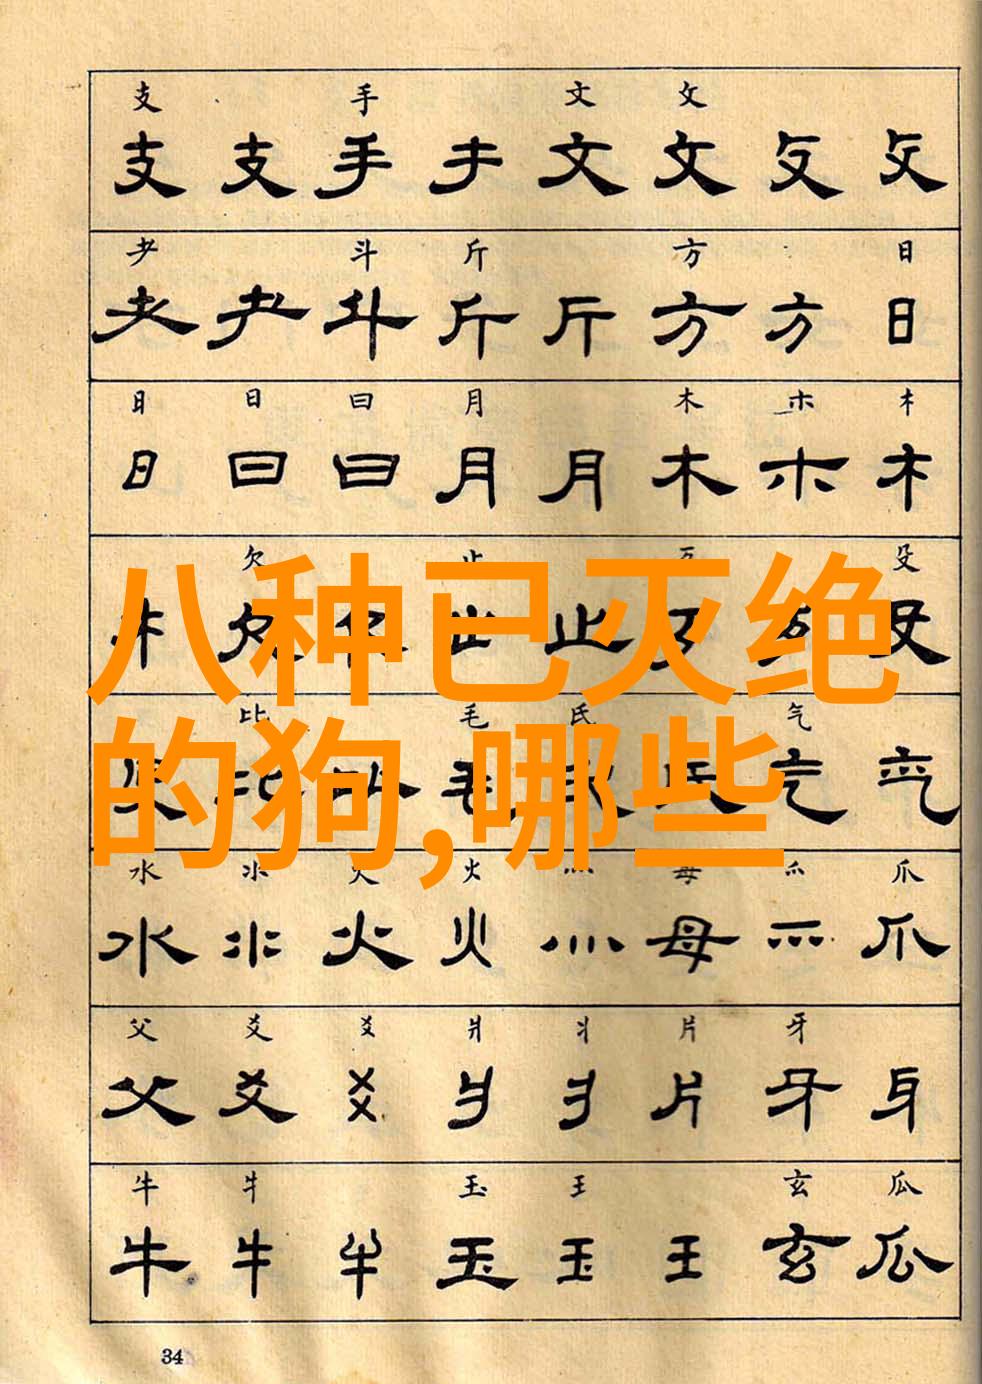 支 手 文 攵
支 支 手 手 文 文 攵 攵
耂 斗 斤 方 日
耂 耂 斗 斤 斤 方 方 日
日 日 曰 月 木 朩
日 曰 曰 月 月 木 朩 木
欠 止 歹 殳
欠 止 止 歹 殳
八种已灭绝
比 毛 氏 气
比 毛 氏 气 气
的狗,哪些
水 氺 火 火 灬 母 爫 爪
水 氺 火 火 灬 母 爫 爪
父 爻 爻 爿 丬 片 牙
父 爻 爻 爿 丬 片 牙 牙
牛 牜 玉 王 玄 瓜
牛 牛 牛 玉 玉 王 玄 瓜
34